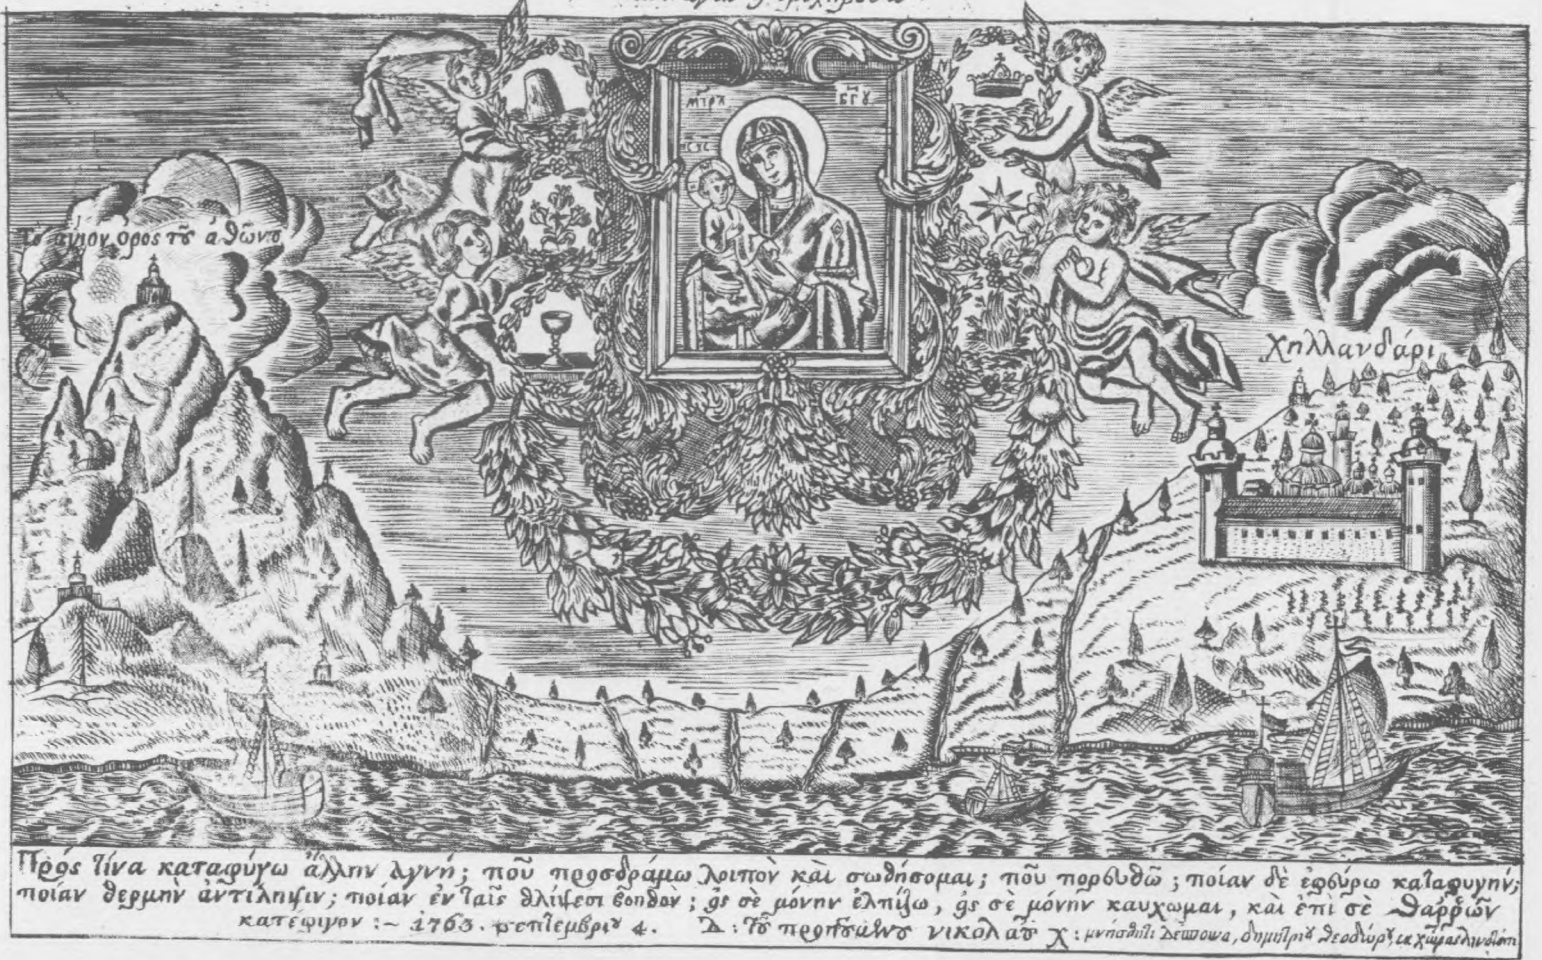 ΜΤΡΑ ΒΓΥ
το αγιον ορος τȣ̃ αθωνος
χηλλανδάρι
Πρός τίνα καταφύγω ἄλλην ἁγνή; ποῦ προσδράμω λοιπὸν καὶ σωθήσομαι; ποῦ πορευθῶ; ποίαν δὲ ἐφεύρω καταφυγήν;
ποίαν θερμὴν ἀντίληψιν; ποίαν ἐν ταῖς θλίψεσι βοηθόν; εἰς σὲ μόνην ἐλπίζω, εἰς σὲ μόνην καυχῶμαι, καὶ ἐπὶ σὲ θαῤῥῶν
κατέφυγον :~ 1763. σεπτεμβρίȣ 4. Δ: τȣ̃ προηγȣμένȣ νικολάȣ Χ: μνήσθητι Δέσποινα, δημητρίȣ θεοδώρȣ, ἐκ χώρας